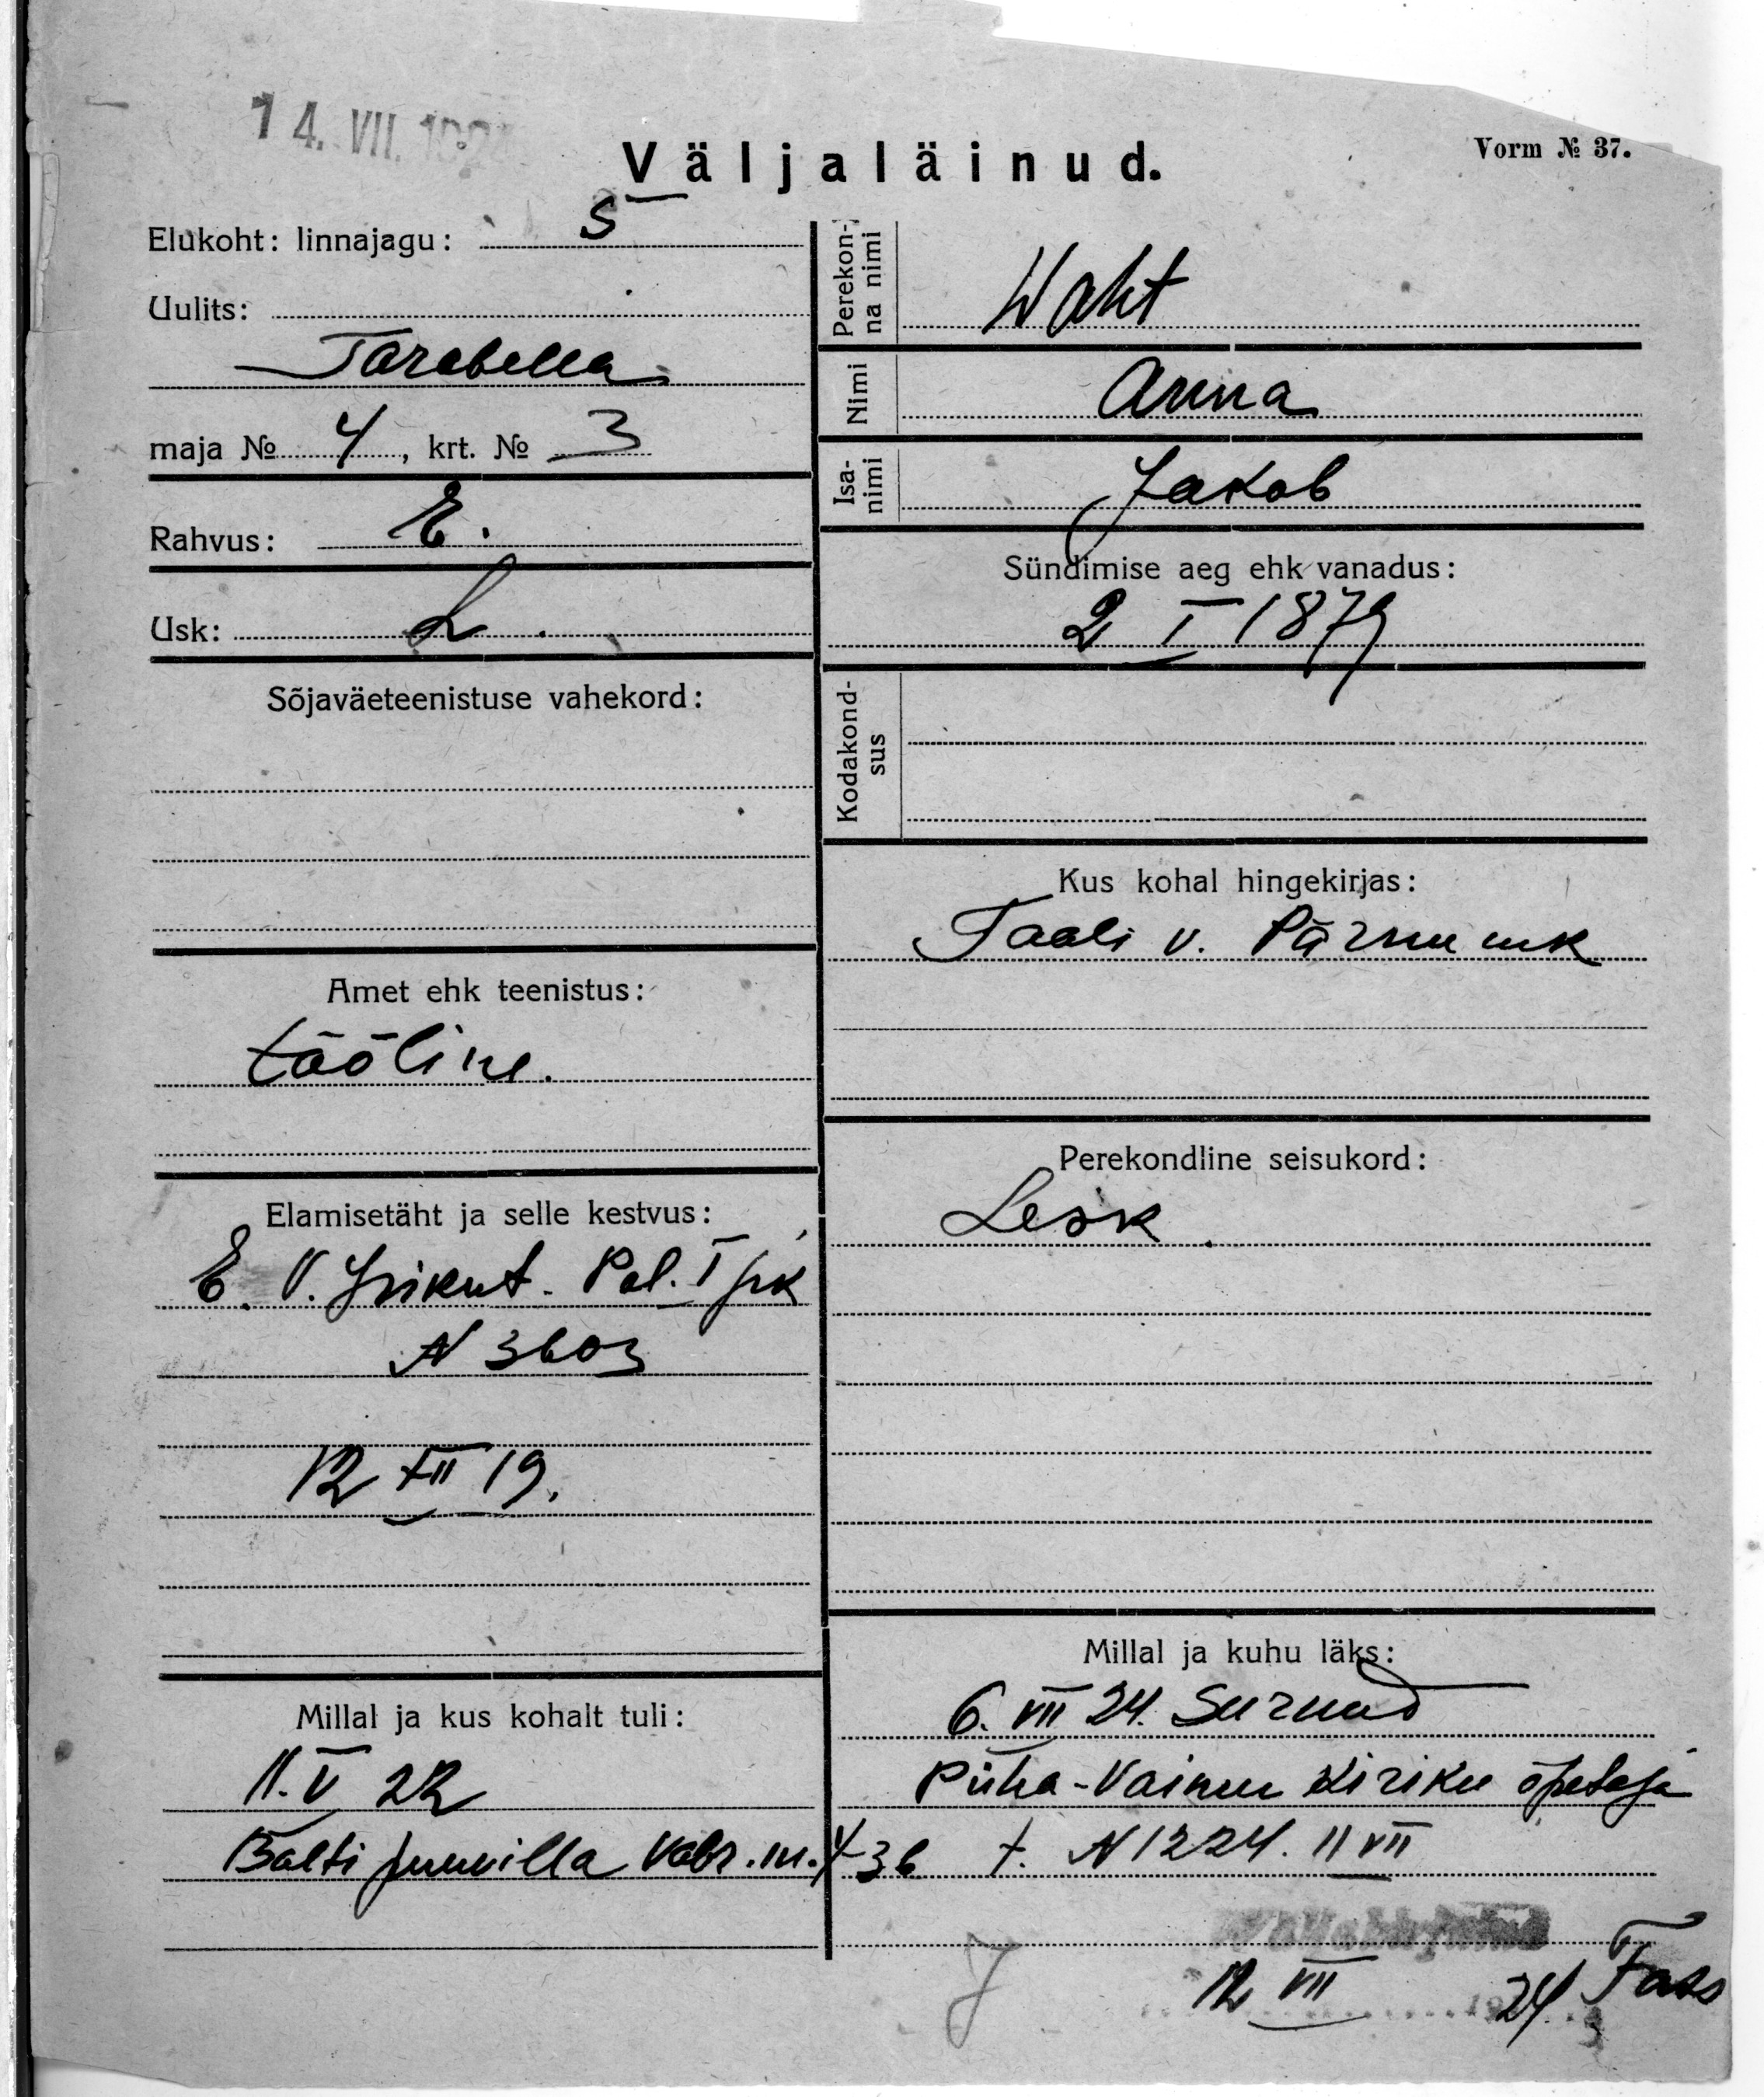 14. VII. 192
Väljaläinud.
Vorm № 37.
Elukoht: linnajagu: 5
Uulits:
Tarabella
maja № 4, krt. № 3
Rahvus: E.
Usk: L.
Sõjaväeteenistuse vahekord:
Amet ehk teenistus:
tööline.
Elamisetäht ja selle kestvus:
E. V. Isikut. Pol. I jsk
N 3603
12 XII 19.
Millal ja kus kohalt tuli:
11. V 22
Balti puuvilla vabr. m. 4 36
Perekonna nimi
Waht
Nimi
Anna
Isanimi
Jakob
Sündimise aeg ehk vanadus:
2 I 1879
Kodakondsus
Kus kohal hingekirjas:
Taali v. Pärnu mk
Perekondline seisukord:
Lesk.
Millal ja kuhu läks:
6. VII 24. Surnud
Püha-Vaimu kiriku õpetaja
t. N 1224. 11 VII
12 VII 24